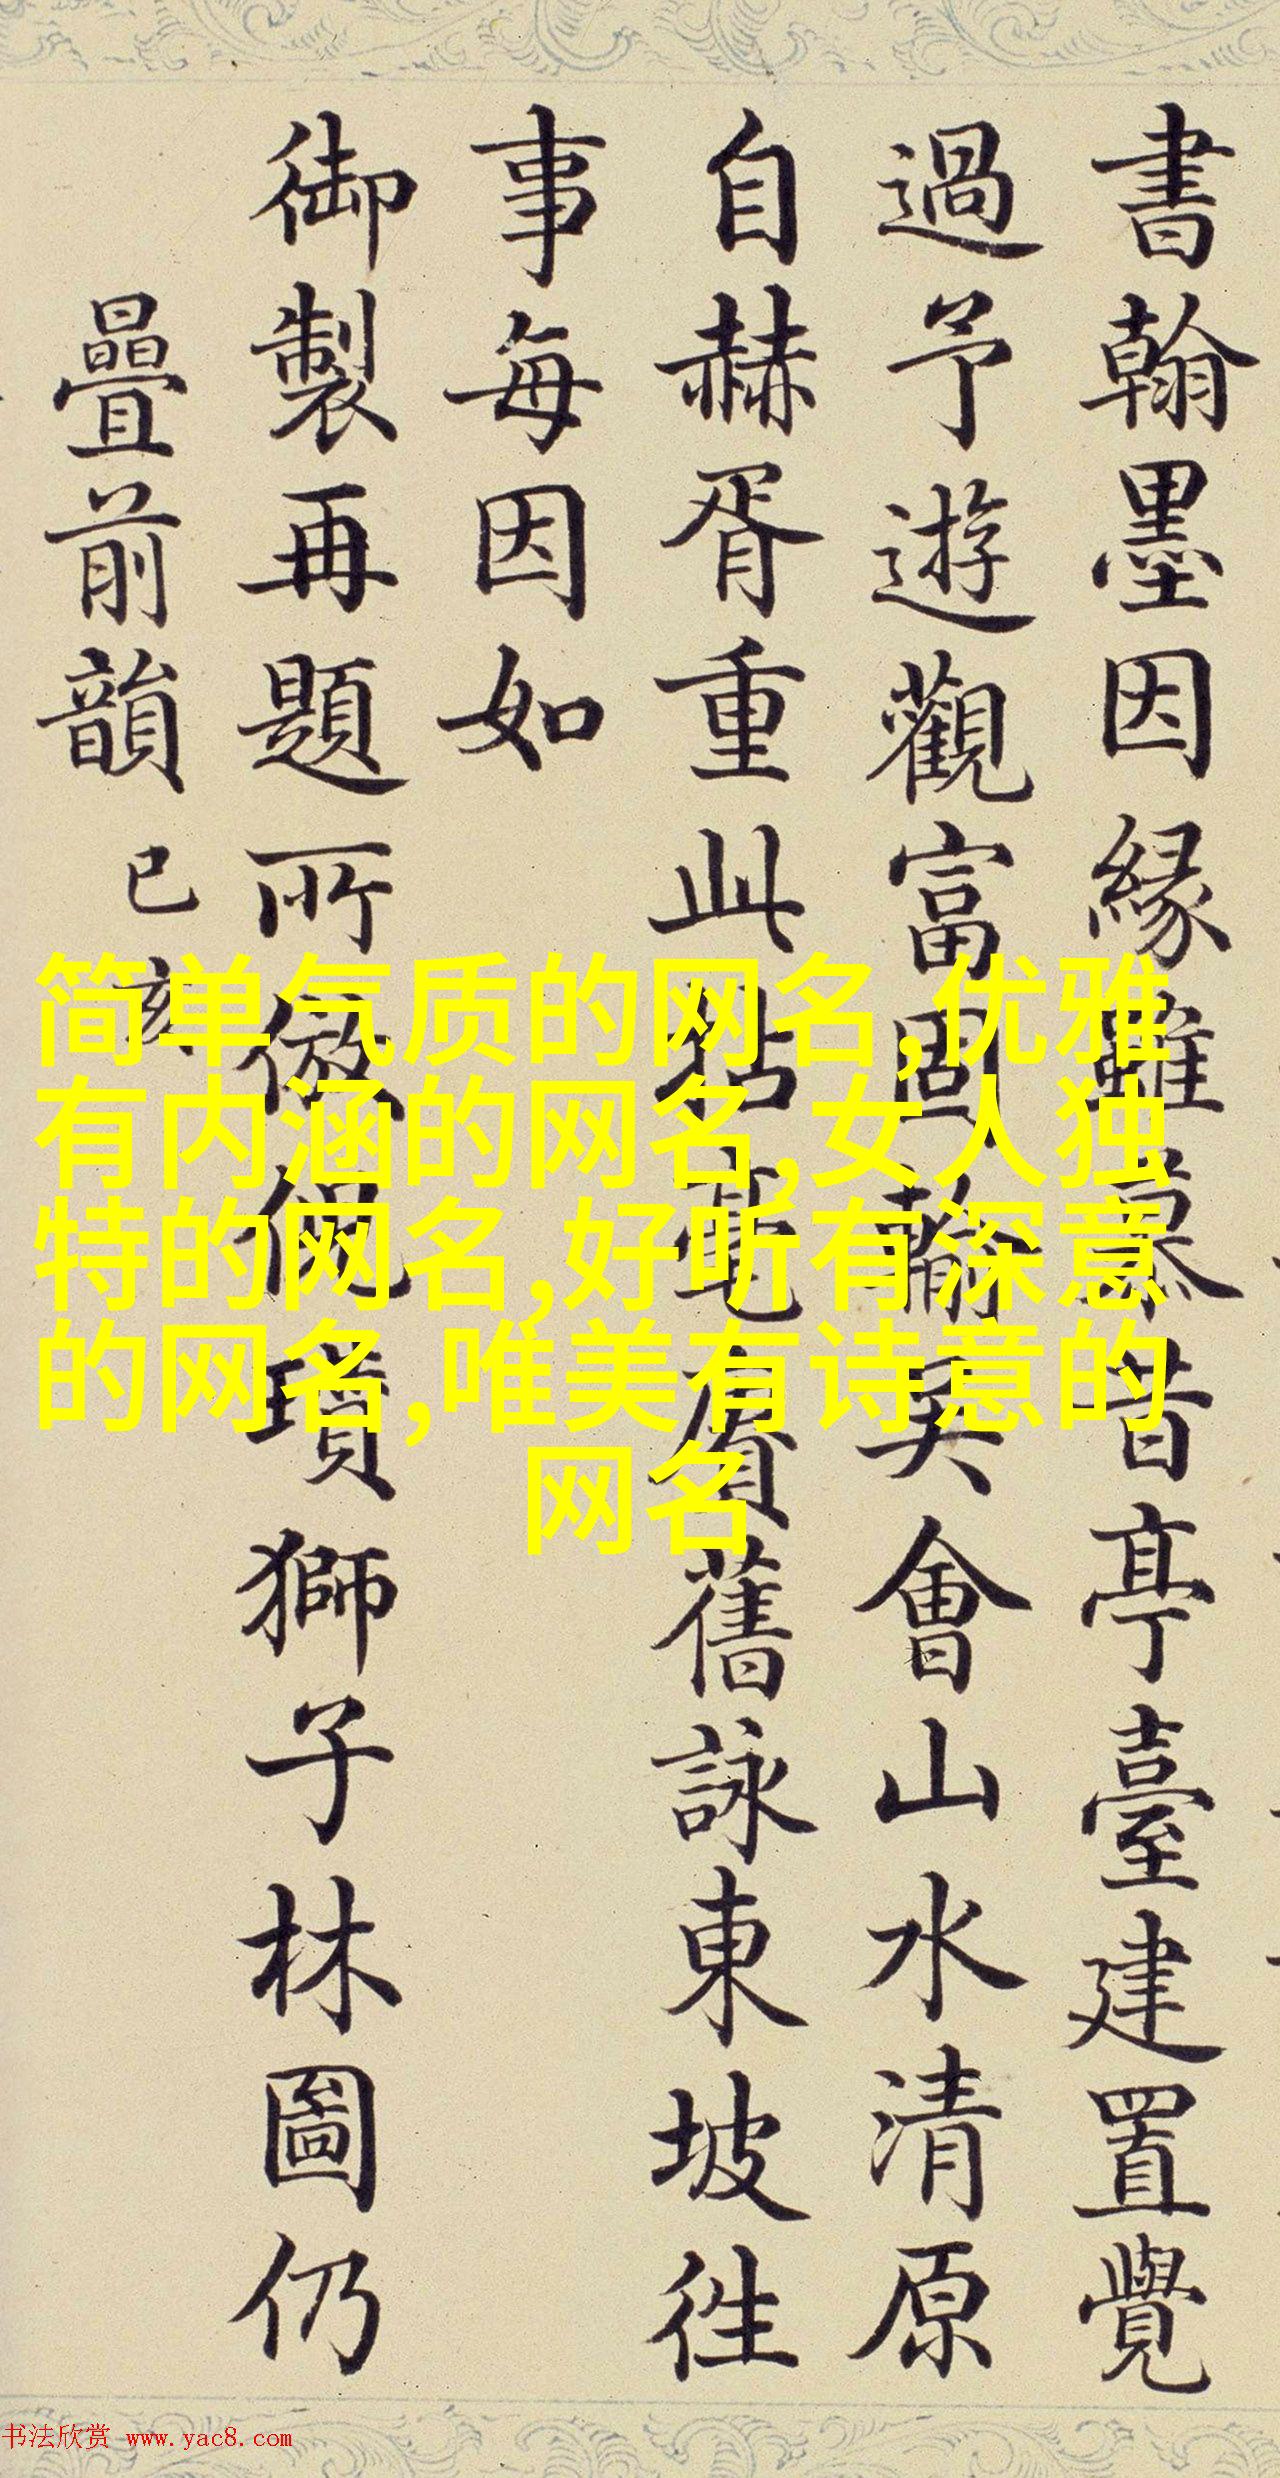 書翰墨因緣雖慕昔亭臺建置覺
過予遊觀富固輸矣會山水清原
自赫胥重此拈毫賡舊詠東坡往
事每因如
御製再題所倣倪瓚獅子林圖仍
疊前韻 己亥
简单气质的网名,优雅
有内涵的网名,女人独
特的网名,好听有深意
的网名,唯美有诗意的
网名
书法欣赏 www.yac8.com